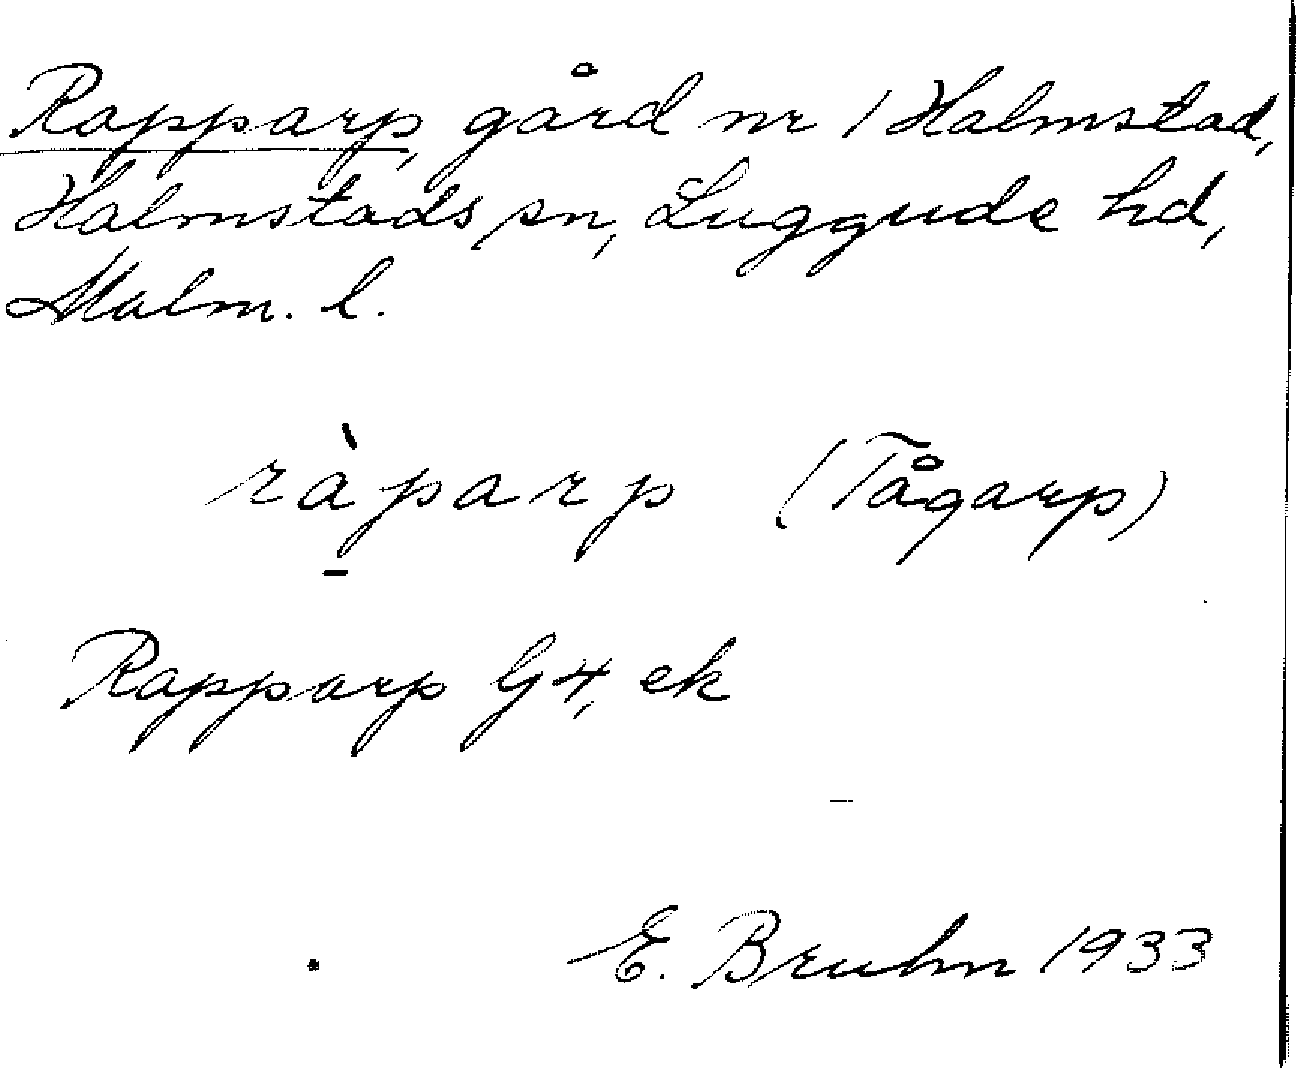 Rapparp, gård nr 1 Halmstad,
Halmstads sn, Luggude hd,
Malm. l.
ràparp (Tågarp)
Rapparp G4, ek
E. Bruhn 1933